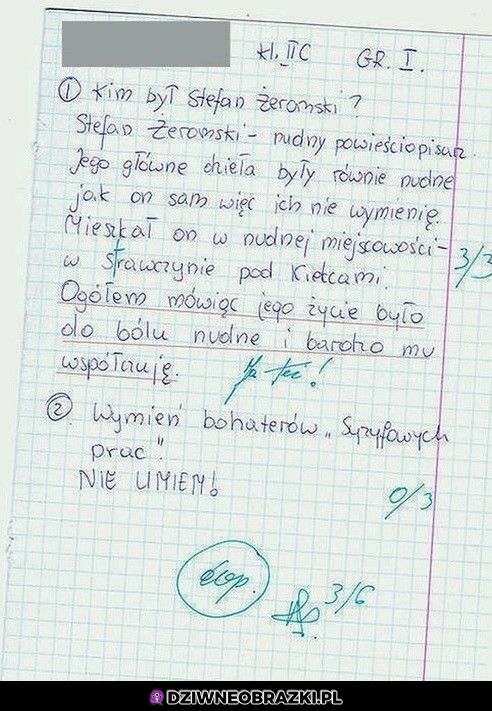 kl. IIC GR. I.
① Kim był Stefan Żeromski?
Stefan Żeromski - nudny powieściopisarz.
Jego główne dzieła były równie nudne
jak on sam więc ich nie wymienię.
Mieszkał on w nudnej miejscowości -
w Strawczynie pod Kielcami.
3/3
Ogółem mówiąc jego życie było
do bólu nudne i bardzo mu
współczuję. Ja też!
② Wymień bohaterów „Syzyfowych
prac".
NIE UMIEM!
0/3
dop. 3/6
DZIWNEOBRAZKI.PL